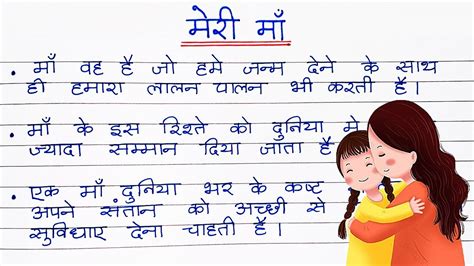 मेरी माँ
• माँ वह है जो हमे जन्म देने के साथ
ही हमारा लालन पालन भी करती है।
• माँ के इस रिश्ते को दुनिया मे
ज्यादा सम्मान दिया जाता है
• एक माँ दुनिया भर के कष्ट
अपने संतान को अच्छी से
सुविधाए देना चाहती है।